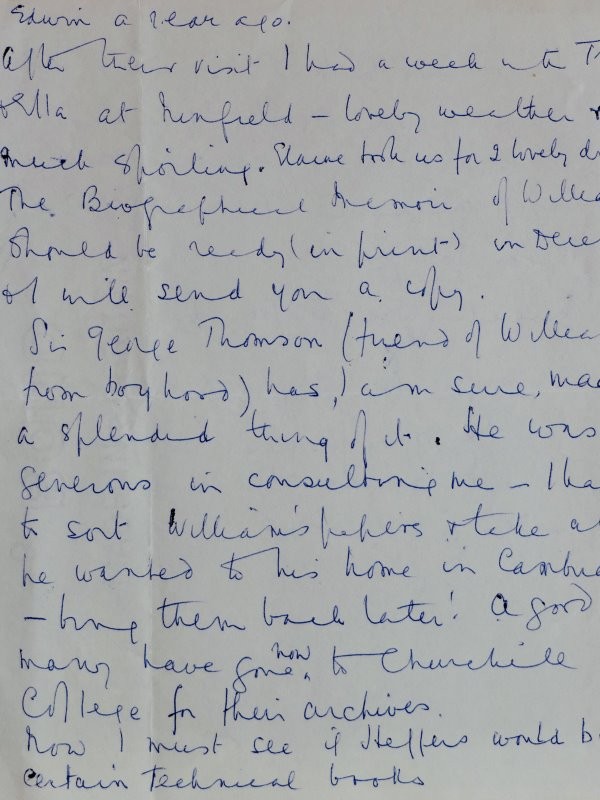 Edwin a year ago.
After their visit I had a week with T
& Ella at Ninfield – lovely weather &
much spoiling. Elaine took us for 2 lovely dr
The Biographical Memoir of Willia
should be ready (in print) in Dece
& I will send you a copy.
Sir George Thomson (friend of Willia
from boyhood) has, I am sure, mad
a splendid thing of it. He was
generous in consulting me – I ha
to sort William's papers & take a
he wanted to his home in Cambri
– bring them back later! A good
many have gone now to Churchill
College for their archives.
Now I must see if Heffers would b
certain technical books